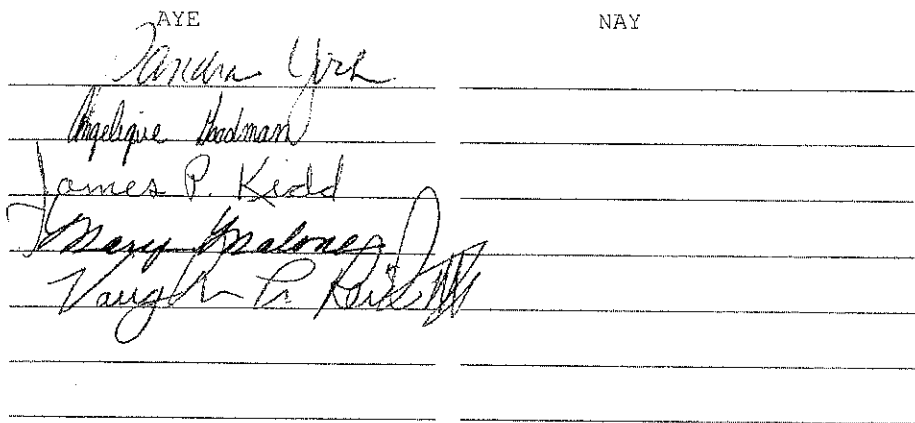 AYE NAY
Sandra York
Angelique Goodman
James P. Kidd
Mary Malone
Vaughn P. Reid III